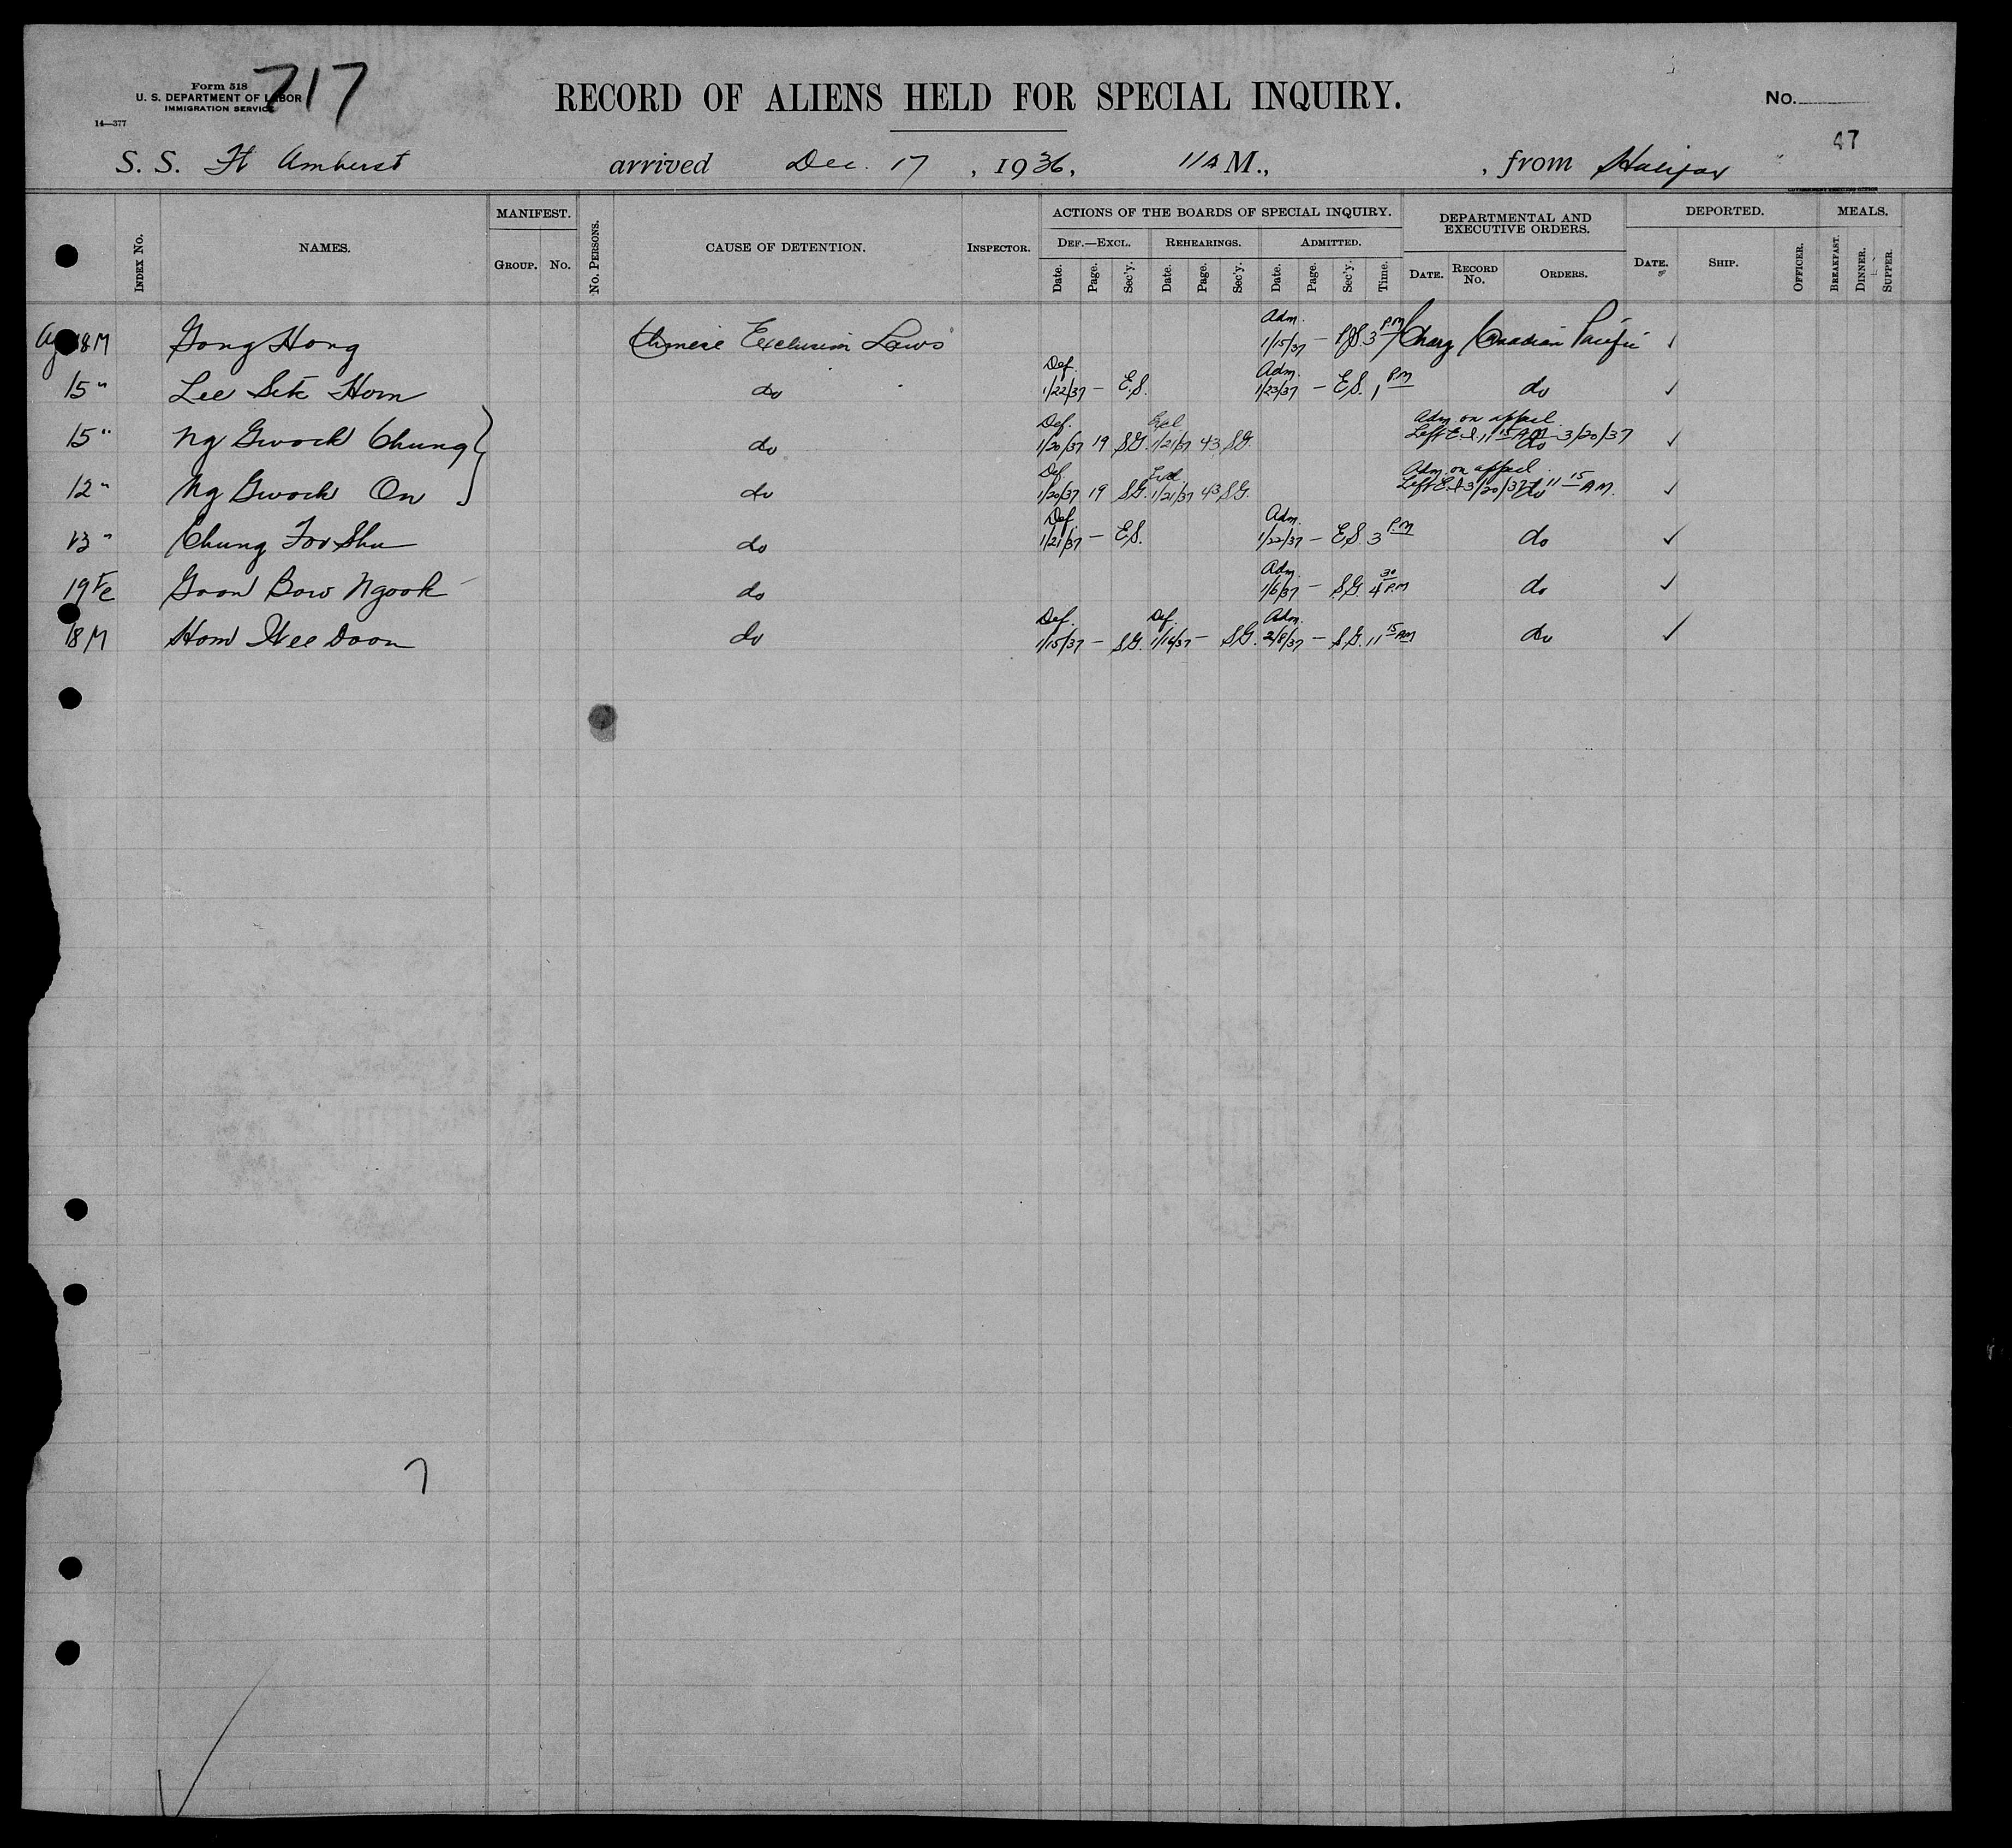 Form 518
U. S. DEPARTMENT OF LABOR
IMMIGRATION SERVICE
14—377
717
RECORD OF ALIENS HELD FOR SPECIAL INQUIRY.
No.
47
S. S. Ft Amherst arrived Dec. 17, 1936, 11 A M., , from Halifax
INDEX No. NAMES. MANIFEST. GROUP. No. No. PERSONS. CAUSE OF DETENTION. INSPECTOR. ACTIONS OF THE BOARDS OF SPECIAL INQUIRY. DEF.—EXCL. Date. Page. Sec'y. REHEARINGS. Date. Page. Sec'y. ADMITTED. Date. Page. Sec'y. Time. DEPARTMENTAL AND EXECUTIVE ORDERS. DATE. RECORD No. ORDERS. DEPORTED. DATE. SHIP. OFFICER. MEALS. BREAKFAST. DINNER. SUPPER.
18 M Gong Hong Chinese Exclusion Laws Adm. 1/15/37 — 3 PM Charg Canadian Pacific ✓
15 " Lee Sik Hom do Def. 1/22/37 — E.S. Adm. 1/23/37 — E.S. 1 PM do ✓
15 " Ng Gwock Chung do Def. 1/20/37 19 S.G. Excl 1/21/37 43 S.G. Adm on appeal Left E.I. 11 15 AM 3/20/37 do ✓
12 " Ng Gwock On do Def 1/20/37 19 S.G. Excl 1/21/37 43 S.G. Adm. on appeal Left E.I. 3/20/37 11 15 A.M. do ✓
13 " Chung Foo Shu do Def 1/21/37 — E.S. Adm. 1/22/37 — E.S. 3 P.M do ✓
19 Fe Goon Bow Ngook do Adm. 1/6/37 — S.G. 4 30 P.M do ✓
18 M Hom Wee Doon do Def. 1/15/37 — S.G. Def. 1/16/37 — S.G. Adm. 2/8/37 — S.G. 11 15 AM do ✓
7